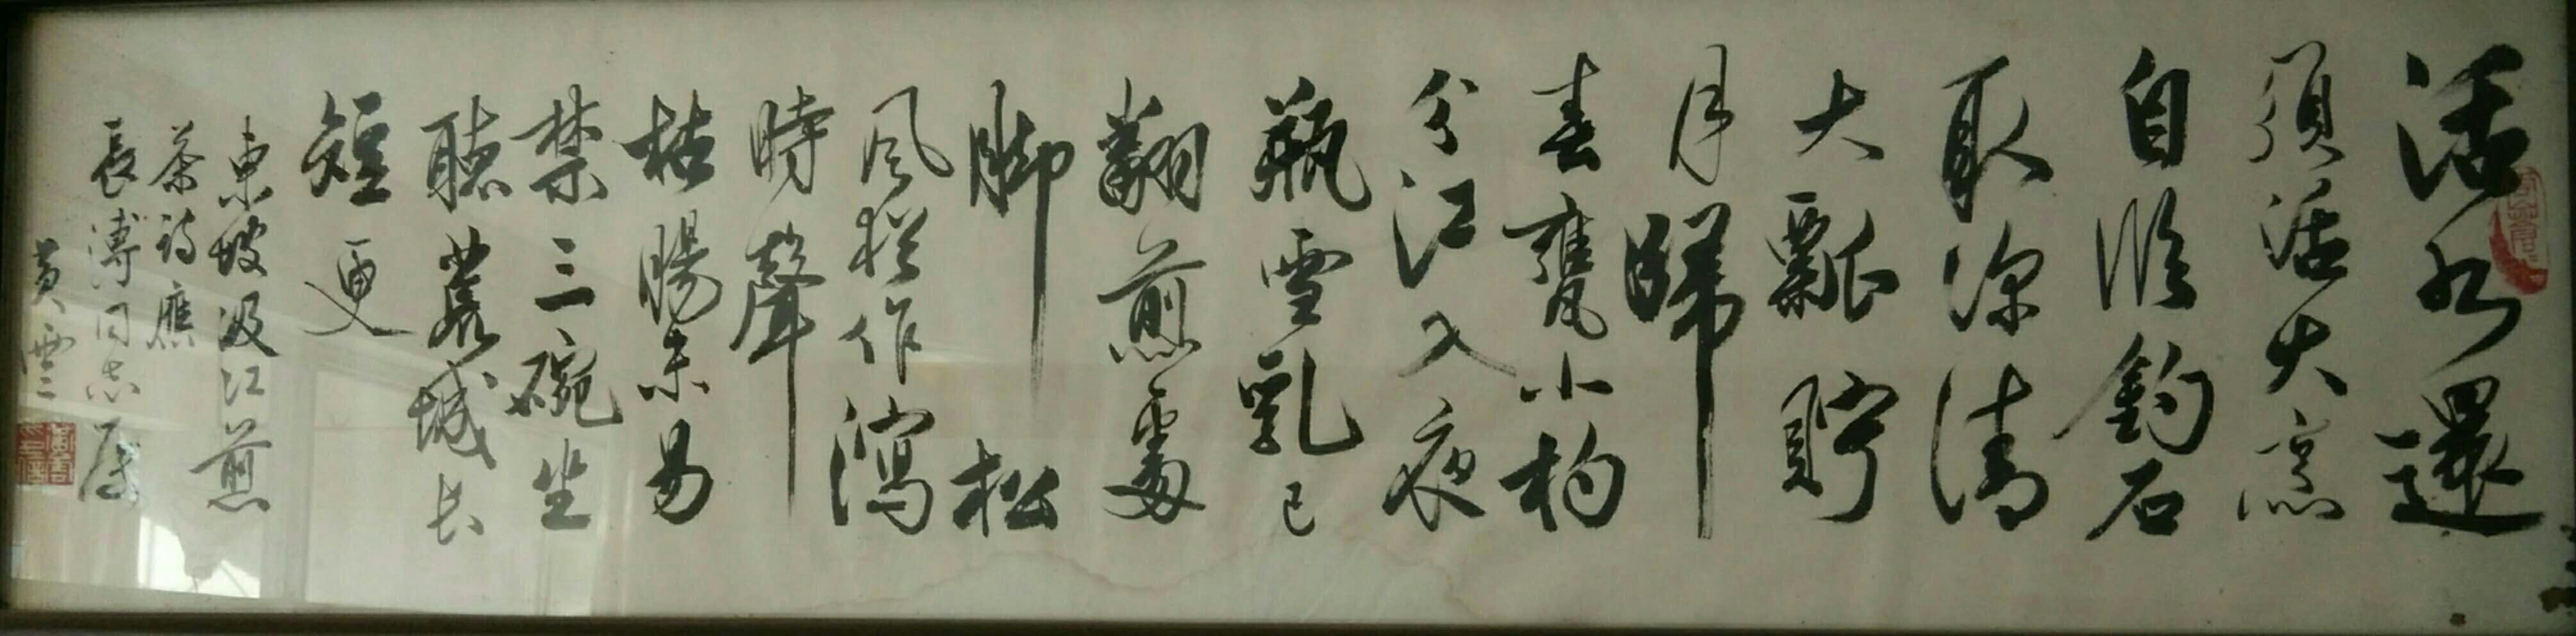 活水還
須活火烹
自臨釣石
取深清
大瓢貯
月歸
春甕小杓
分江入夜
瓶雪乳已
翻煎處
脚松
風猶作瀉
時聲
枯腸未易
禁三碗坐
聽荒城长
短更
東坡汲江煎
茶诗應
長溥同志属
黄雲